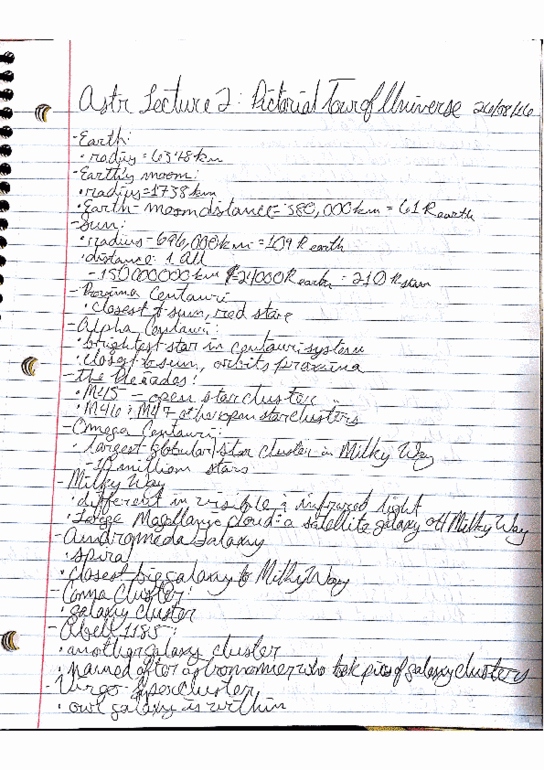 Astr Lecture 2: Pictorial Tour of Universe 26/08/16
- Earth:
• radius = 6378 km
- Earth's moon:
• radius = 1738 km
• Earth-moon distance = 380,000 km = 61 R earth
- Sun:
• radius - 696,000 km = 109 R earth
• distance: 1 AU
- 150000000 km = 24000 R earth = 210 R sun
- Proxima Centauri
• closest to sun, red star
- Alpha Centauri:
• brightest star in centauri system
• closest to sun, orbits proxima
- the Pleiades:
• M45 - open star cluster
• M46 & M47 other open star clusters
- Omega Centauri:
• largest globular star cluster in Milky Way
- 10 million stars
- Milky Way
• different in visible & infrared light
• Large Magellanic cloud: a satellite galaxy of Milky Way
- Andromeda Galaxy
• spiral
• closest big galaxy to Milky Way
- Coma Cluster:
• galaxy cluster
- Abell 1185:
• another galaxy cluster
• named after astronomer who took pics of galaxy clusters
- Virgo Supercluster
• our galaxy is within